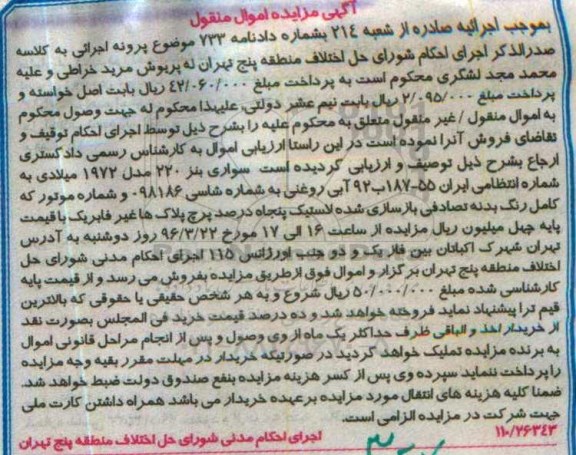 آگهی مزایده اموال منقول
بموجب اجرائیه صادره از شعبه ۲۱٤ بشماره دادنامه ۷۳۳ موضوع پرونه اجرائی به کلاسه
صدرالذکر اجرای احکام شورای حل اختلاف منطقه پنج تهران له پریوش مرید خراطی و علیه
محمد مجد لشگری محکوم است به پرداخت مبلغ ٤۲/۰۶۰/۰۰۰ ریال بابت اصل خواسته و
پرداخت مبلغ ۲/۰۹۵/۰۰۰ ریال بابت نیم عشر دولتی، علیهذا محکوم له جهت وصول محکوم
به اموال منقول / غیر منقول متعلق به محکوم علیه را بشرح ذیل توسط اجرای احکام توقیف و
تقاضای فروش آنرا نموده است در این راستا ارزیابی اموال به کارشناس رسمی دادگستری
ارجاع بشرح ذیل توصیف و ارزیابی گردیده است سواری بنز ۲۳۰ مدل ۱۹۷۲ میلادی به
شماره انتظامی ایران ۵۵-۱۸۷ب۹۲ آبی روغنی به شماره شاسی ۰۹۸۱۸۶ و شماره موتور که
کامل رنگ بدنه تصادفی بازسازی شده لاستیک پنجاه درصد پرچ پلاک ها غیر فابریک با قیمت
پایه چهل میلیون ریال مزایده از ساعت ۱۶ الی ۱۷ مورخ ۹۶/۳/۲۲ روز دوشنبه به آدرس
تهران شهرک اکباتان بین فاز یک و دو جنب اورژانس ۱۱۵ اجرای احکام مدنی شورای حل
اختلاف منطقه پنج تهران برگزار و اموال فوق ازطریق مزایده بفروش می رسد و از قیمت پایه
کارشناسی شده مبلغ ۵۰/۰۰۰/۰۰۰ ریال شروع و به هر شخص حقیقی یا حقوقی که بالاترین
قیم ترا پیشنهاد نماید فروخته خواهد شد و ده درصد قیمت خرید فی المجلس بصورت نقد
از خریدار اخذ و الباقی ظرف حداکثر یک ماه از وی وصول و پس از انجام مراحل قانونی اموال
به برنده مزایده تملیک خواهد گردید در صورتیکه خریدار در مهلت مقرر بقیه وجه مزایده
را پرداخت ننماید سپرده وی پس از کسر هزینه مزایده بنفع صندوق دولت ضبط خواهد شد.
ضمنا کلیه هزینه های انتقال مورد مزایده برعهده خریدار می باشد همراه داشتن کارت ملی
جهت شرکت در مزایده الزامی است.
۱۱۰/۲۶۳٤۳ اجرای احکام مدنی شورای حل اختلاف منطقه پنج تهران